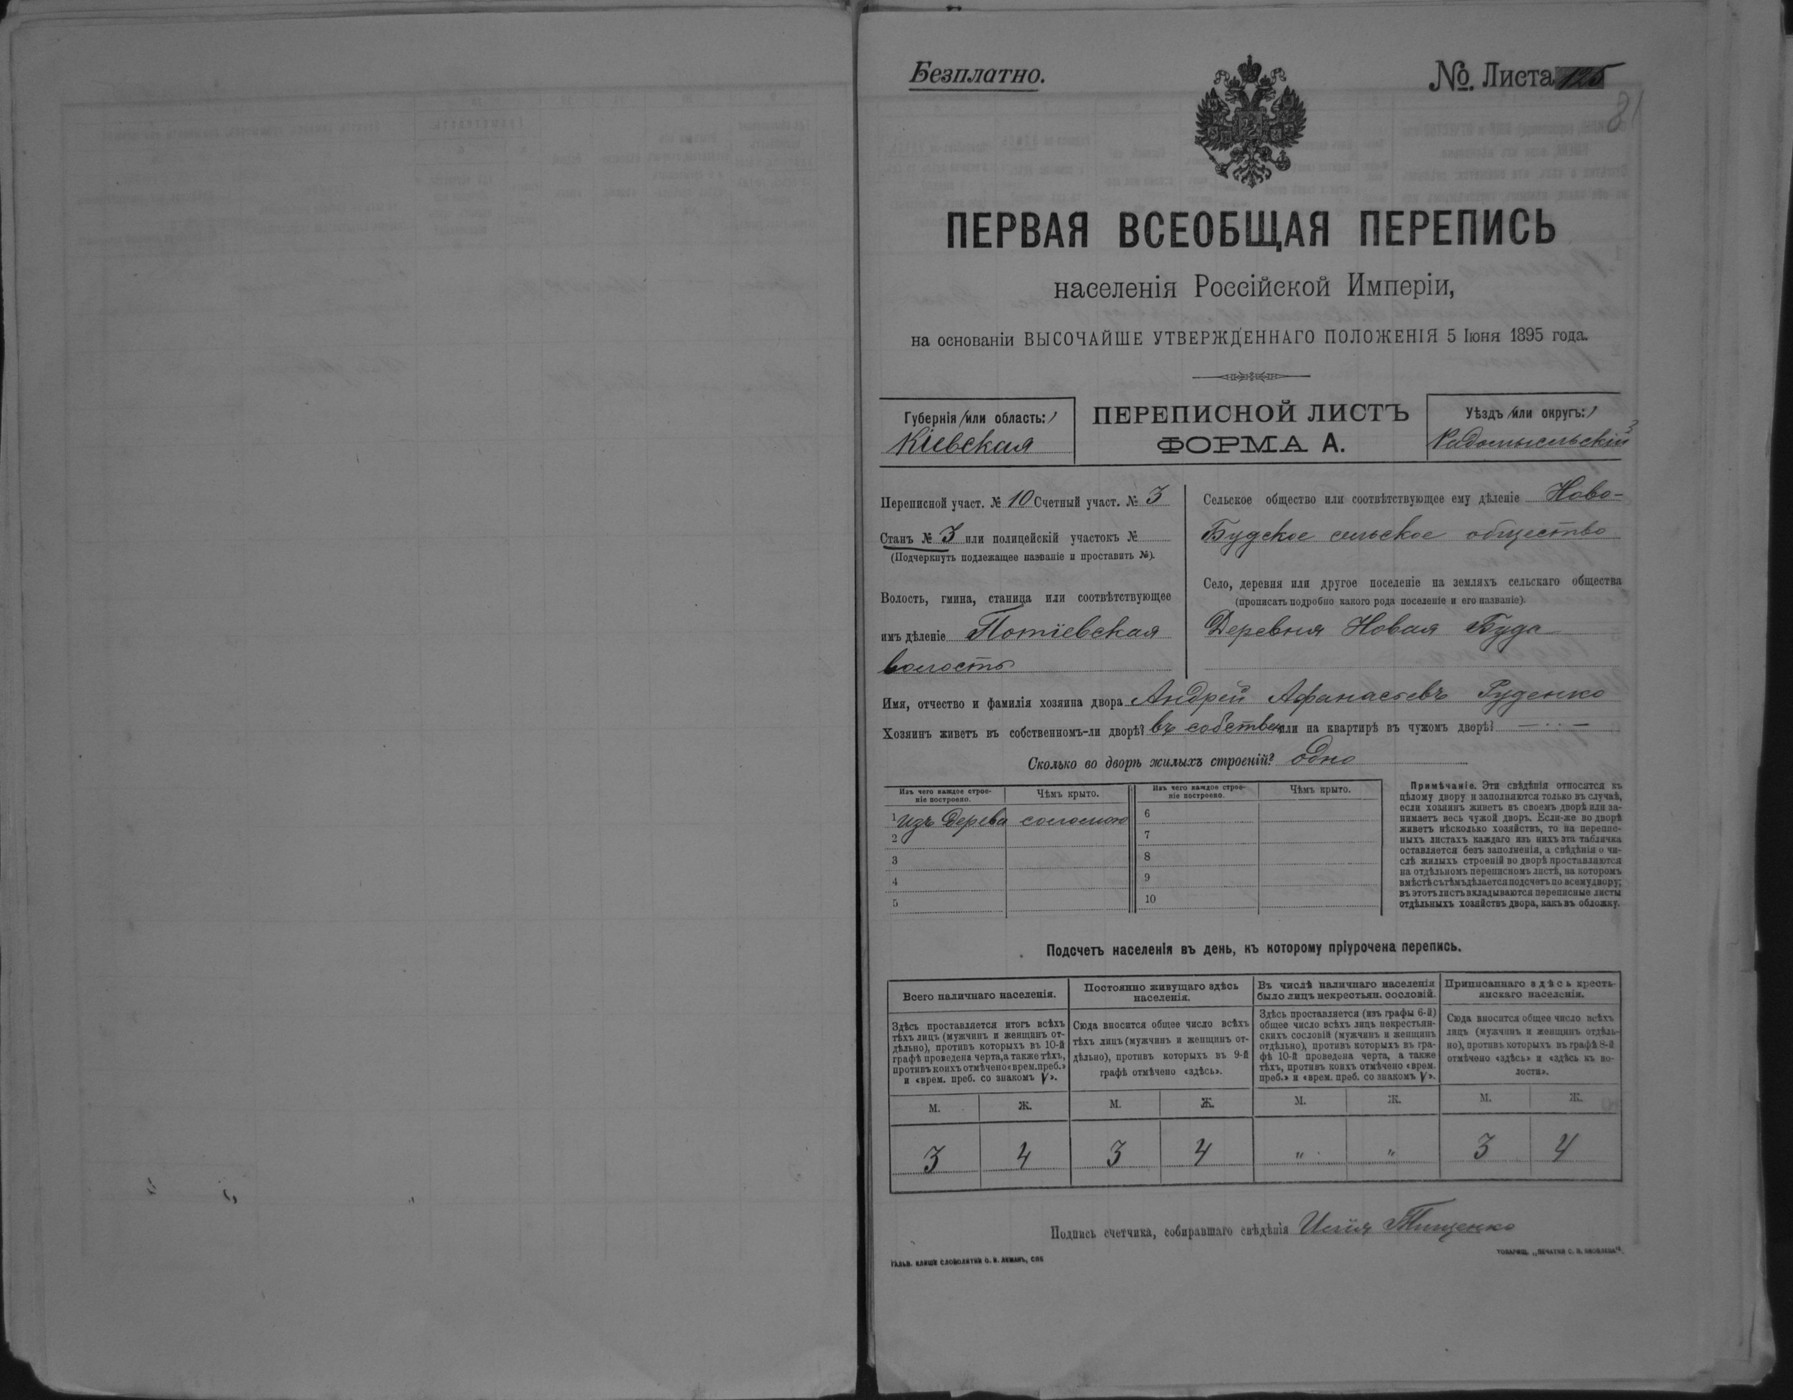 Безплатно.
№. Листа 125
81
ПЕРВАЯ ВСЕОБЩАЯ ПЕРЕПИСЬ
населенія Россійской Имперіи,
на основаніи ВЫСОЧАЙШЕ УТВЕРЖДЕННАГО ПОЛОЖЕНІЯ 5 Іюня 1895 года.
Губернія (или область:)
Кіевская
ПЕРЕПИСНОЙ ЛИСТЪ
ФОРМА А.
Уѣздъ (или округъ:)
Радомысльскій
Переписной участ. № 10 Счетный участ. № 3
Станъ № 3 или полицейскій участокъ №
(Подчеркнуть подлежащее названіе и проставить №).
Волость, гмина, станица или соотвѣтствующее
имъ дѣленіе Потіевская
волость
Сельское общество или соотвѣтствующее ему дѣленіе Ново-
Будское сельское общество
Село, деревня или другое поселеніе на земляхъ сельскаго общества
(прописать подробно какого рода поселеніе и его названіе)
Деревня Новая Буда
Имя, отчество и фамилія хозяина двора Андрей Афанасьевъ Руденко
Хозяинъ живетъ въ собственномъ-ли дворѣ? въ собствен. или на квартирѣ въ чужомъ дворѣ?
Сколько во дворѣ жилыхъ строеній? одно
Изъ чего каждое строе-
ніе построено.
Чѣмъ крыто.
Изъ чего каждое строе-
ніе построено.
Чѣмъ крыто.
1 Изъ Дерева соломою
2
3
4
5
6
7
8
9
10
Примѣчаніе. Эти свѣдѣнія относятся къ
цѣлому двору и заполняются только въ случаѣ,
если хозяинъ живетъ въ своемъ дворѣ или за-
нимаетъ весь чужой дворъ. Если-же во дворѣ
живетъ нѣсколько хозяйствъ, то на перепис-
ныхъ листахъ каждаго изъ нихъ эта табличка
оставляется безъ заполненія, а свѣдѣнія о чи-
слѣ жилыхъ строеній во дворѣ проставляются
на отдѣльномъ переписномъ листѣ, на которомъ
вмѣстѣ съ тѣмъ дѣлается подсчетъ по всему двору;
въ этотъ листъ вкладываются переписные листы
отдѣльныхъ хозяйствъ двора, какъ въ обложку.
Подсчетъ населенія въ день, къ которому пріурочена перепись.
Всего наличнаго населенія.
Здѣсь проставляется итогъ всѣхъ
тѣхъ лицъ (мужчинъ и женщинъ от-
дѣльно), противъ которыхъ въ 10-й
графѣ проведена черта, а также тѣхъ,
противъ коихъ отмѣчено «врем. преб.»
и «врем. преб. со знакомъ V».
Постоянно живущаго здѣсь
населенія.
Сюда вносится общее число всѣхъ
тѣхъ лицъ (мужчинъ и женщинъ от-
дѣльно), противъ которыхъ въ 9-й
графѣ отмѣчено «здѣсь».
Въ числѣ наличнаго населенія
было лицъ некрестьян. сословій.
Здѣсь проставляется (изъ графы 6-й)
общее число всѣхъ лицъ некрестьян-
скихъ сословій (мужчинъ и женщинъ
отдѣльно), противъ которыхъ въ гра-
фѣ 10-й проведена черта, а также
тѣхъ, противъ коихъ отмѣчено «врем.
преб.» и «врем. преб. со знакомъ V».
Приписаннаго здѣсь кресть-
янскаго населенія.
Сюда вносится общее число всѣхъ
лицъ (мужчинъ и женщинъ отдѣль-
но), противъ которыхъ въ графѣ 8-й
отмѣчено «здѣсь» и «здѣсь въ во-
лости».
М. Ж. М. Ж. М. Ж. М. Ж.
3 4 3 4 " " 3 4
Подпись счетчика, собиравшаго свѣдѣнія Исаія Тищенко
ГАЛЬВ. КЛИШЕ СЛОВОЛИТНИ О. И. ЛЕМАНЪ, СПБ
ТОВАРИЩ. „ПЕЧАТНЯ С. П. ЯКОВЛЕВА“.